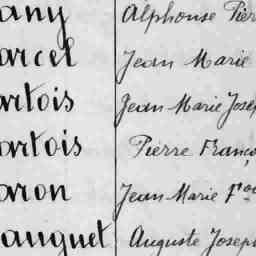 any Alphonse Pier
arcel Jean Marie
artois Jean Marie Josep
artois Pierre Franço
aron Jean Marie Fçois
auguet Auguste Joseph